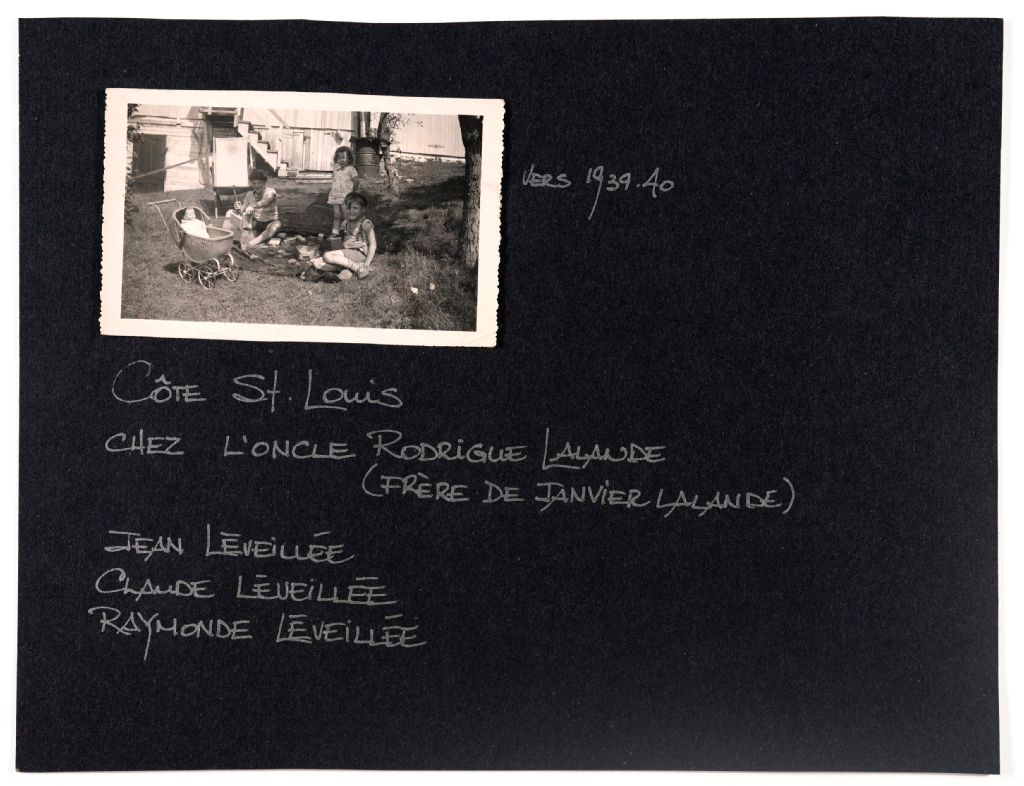 VERS 1939-40
CÔTE St. Louis
CHEZ L'ONCLE RODRIGUE LALANDE
(FRÈRE DE JANVIER LALANDE)
JEAN LÉVEILLÉE
CLAUDE LÉVEILLÉE
RAYMONDE LÉVEILLÉE